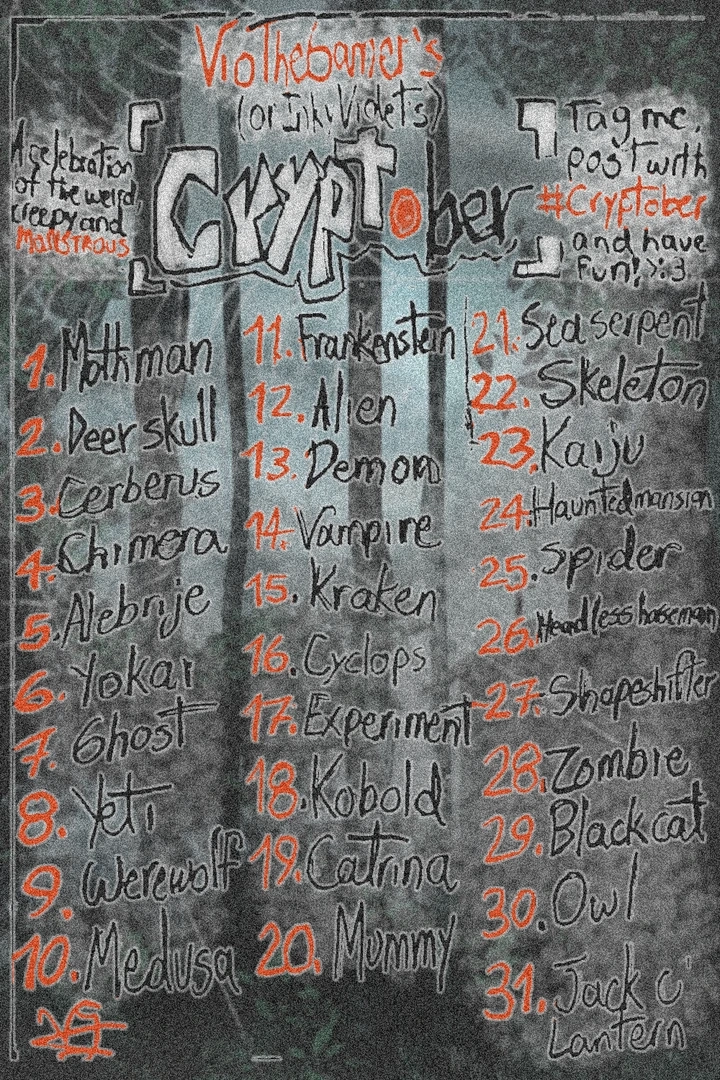 VioTheGamer's
(or Inky Violet's)
Cryptober
A celebration
of the weird,
creepy and
MONSTROUS
Tag me,
post with
#Cryptober
and have
fun! >:3
1. Mothman
2. Deer skull
3. Cerberus
4. Chimera
5. Alebrije
6. Yokai
7. Ghost
8. Yeti
9. Werewolf
10. Medusa
11. Frankenstein
12. Alien
13. Demon
14. Vampire
15. Kraken
16. Cyclops
17. Experiment
18. Kobold
19. Catrina
20. Mummy
21. Sea serpent
22. Skeleton
23. Kaiju
24. Haunted mansion
25. Spider
26. Headless horseman
27. Shapeshifter
28. Zombie
29. Black cat
30. Owl
31. Jack o'
Lantern